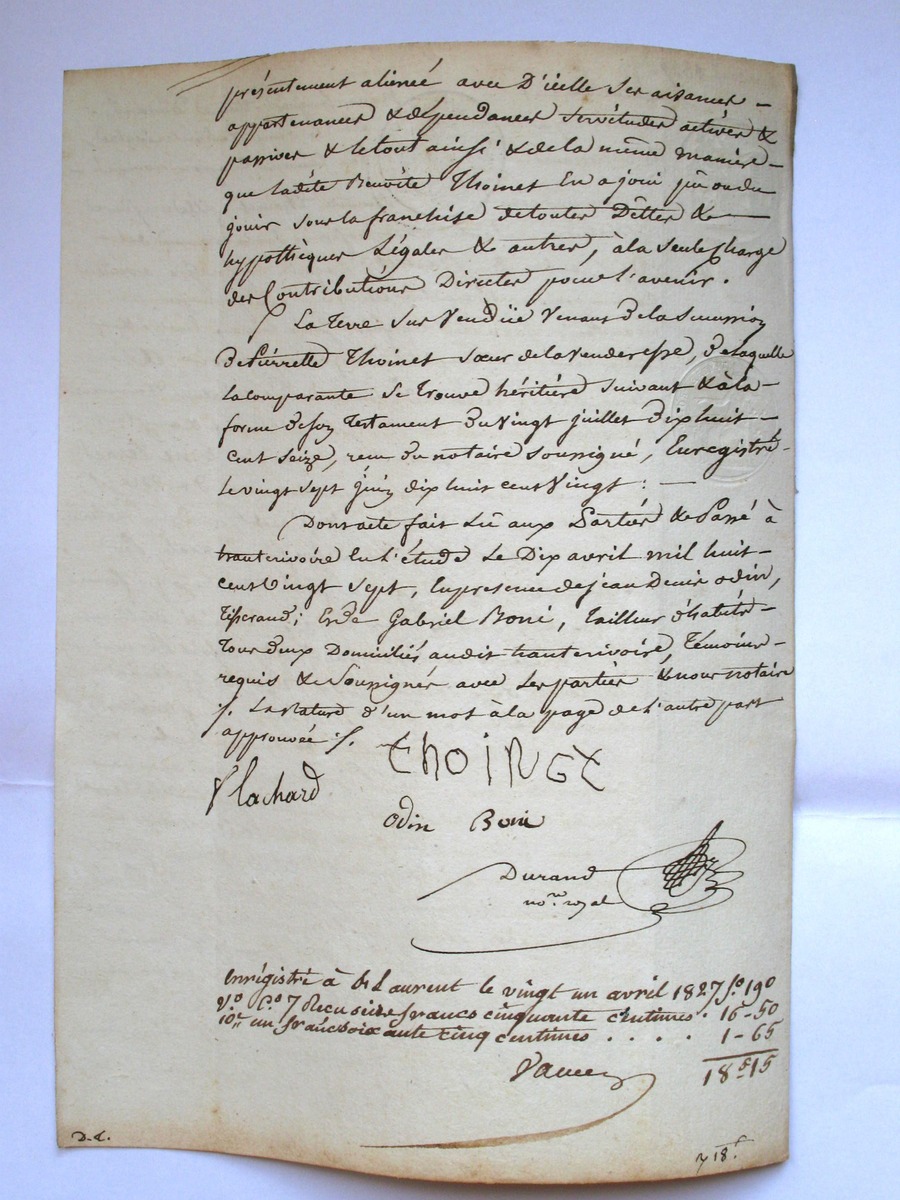 présentement alienée avec D'icelle ses aisances -
appartenances & dependances servitudes actives &
passives & le tout ainsi & de la même maniere -
que ladite Benoîte Thoinet En a joui pû ou du
jouir sous la franchise de toutes Dettes & -
hypothèques Légales & autres, à la seule charge
des Contributions Directes pour l'avenir.
La Terre sus Venduë Venant De la Succession
De Pierrette Thoinet sœur de la venderesse, De laquelle
La comparante se trouve héritière suivant & à la -
forme De son Testament Du Vingt juillet Dix huit -
Cent seize, reçu Du notaire soussigné, Enregistré -
Le vingt sept juin dix huit cent Vingt : -
Dont acte fait Lû aux Parties & Passé à
hauterivoire En L'étude Le Dix avril mil huit -
Cent Vingt sept, En presence de jean Denis odin,
Tisserand; Et De Gabriel Boni, Tailleur d'habits -
Tous Deux Domiciliés audit hauterivoire, Témoins -
requis & Soussignés avec Les parties & nous notaire
./. La rature d'un mot à la page de L'autre part
approuvée ./.
THOINET
Vlachard
odin Boni
Durand
no.re royal
Enrégistré à St Laurent le vingt un avril 1827 fo. 190
Vo. Co. 7 Reçu seize francs cinquante centimes . 16 - 50
10e. un franc soixante cinq centimes . . . . 1 - 65
18f 15
D.L.
18.f